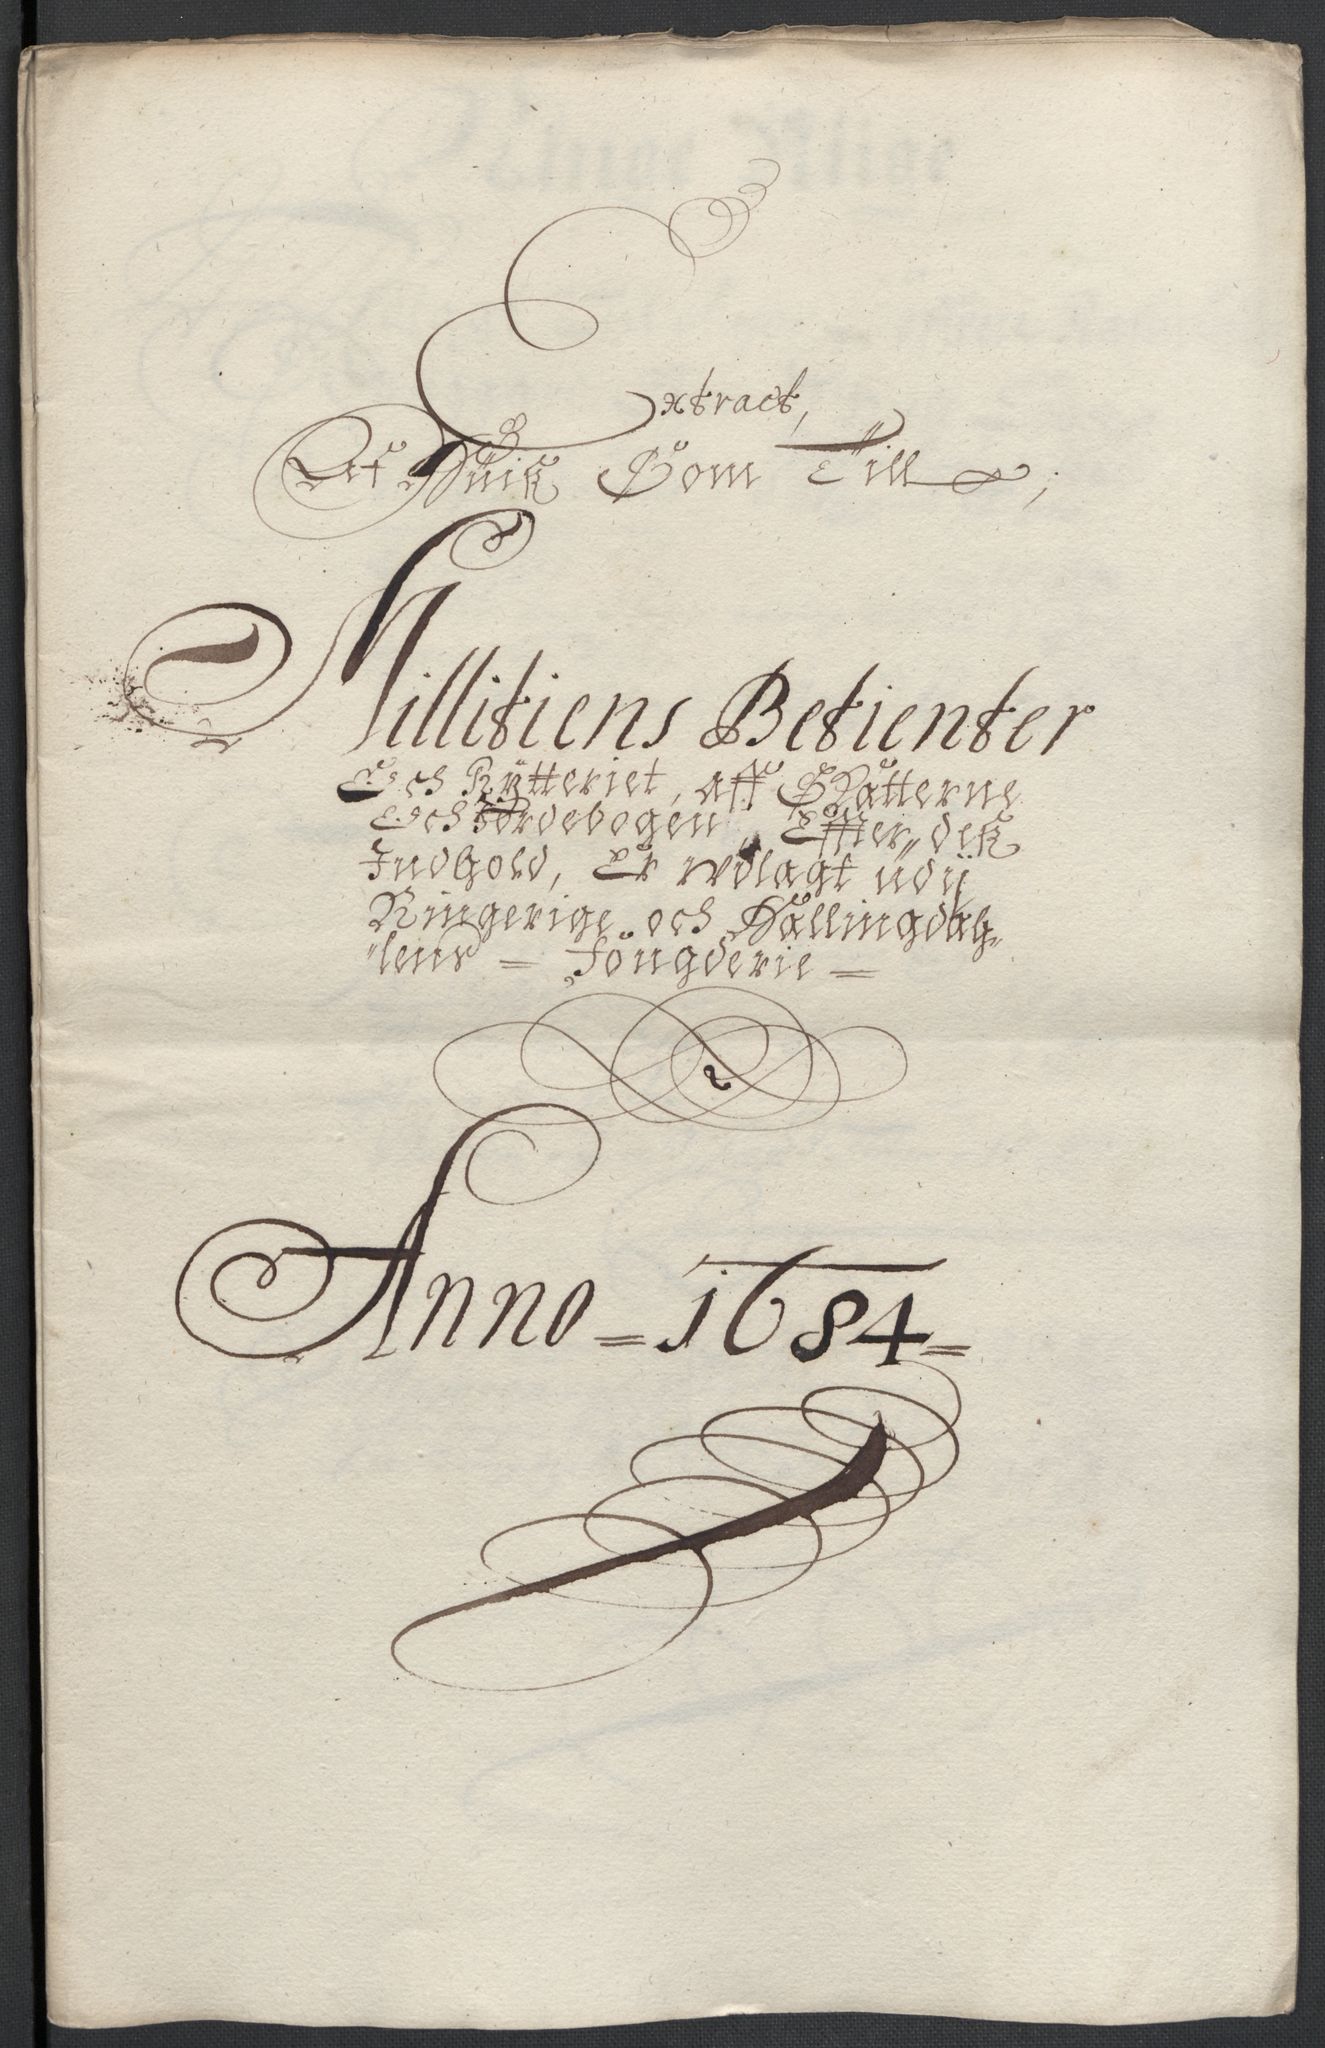 Extract,
Af Huis Som Till;
Millitiens Betienter
Och Rÿtteriet, aff Skatterne
Och Jordebogen Effter dets
Indhold, Er wdlagt udÿ
Ringerige och Hallingdah-
lens = Fougderie =
Anno = 1684 =